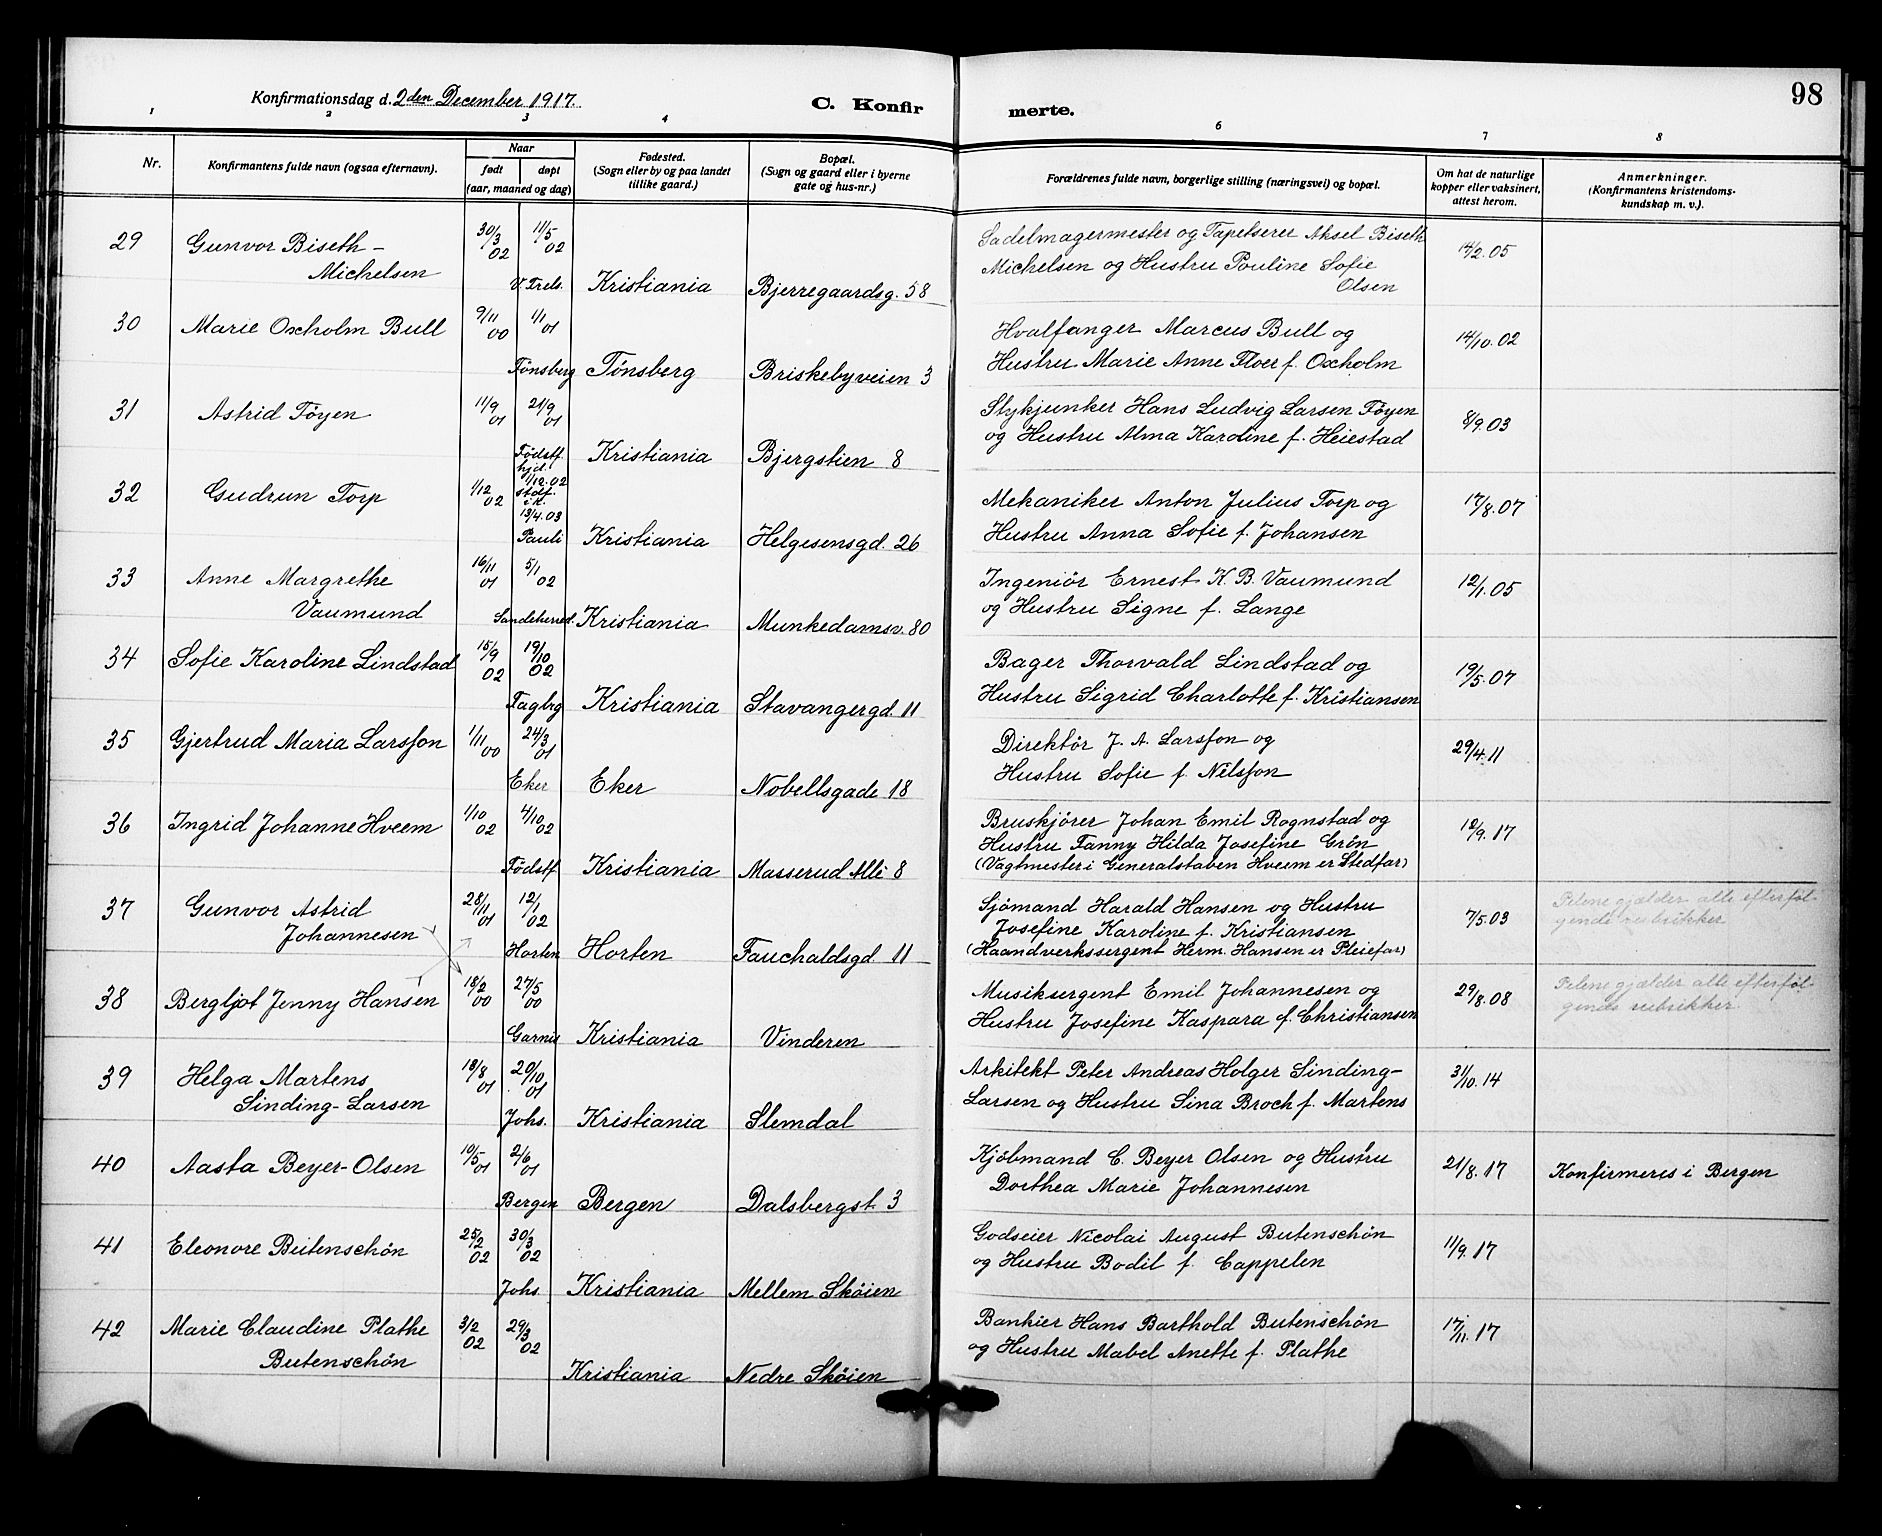 Konfirmationsdag d. 2den December 1917.
C. Konfirmerte.
98
1 2 3 4 6 7 8
Nr.
Konfirmantens fulde navn (ogsaa efternavn).
Naar
født døpt
(aar, maaned og dag)
Fødested.
(Sogn eller by og paa landet
tillike gaard.)
Bopæl.
(Sogn og gaard eller i byerne
gate og hus-nr.)
Forældrenes fulde navn, borgerlige stilling (næringsvei) og bopæl.
Om hat de naturlige
kopper eller vaksinert,
attest herom.
Anmerkninger.
(Konfirmantens kristendoms-
kundskap m. v.).
29 Gunvor Biseth-
Michelsen
30/3 02 11/5 02
V. Frels. Kristiania Bjerregaardsg. 58
Sadelmagermester og Tapetserer Aksel Biseth
Michelsen og Hustru Pouline Sofie
Olsen
14/2.05
30 Marie Oxholm Bull
9/11 00 1/1 01
Tönsberg Tönsberg Briskebyveien 3
Hvalfanger Marcus Bull og
Hustru Marie Anne Floer f. Oxholm
14/10.02
31 Astrid Töyen
11/9 01 21/9 01
Födstf. Kristiania Bjergstien 8
Stykjunker Hans Ludvig Larsen Töyen
og Hustru Alma Karoline f. Heiestad
8/9.03
32 Gudrun Torp
1/12 02
hjd.
1/12.02
stadf.
i k.
13/4.03
Pauli Kristiania Helgesensgd. 26
Mekaniker Anton Julius Torp og
Hustru Anna Sofie f. Johansen
17/8.07
33 Anne Margrethe
Vaumund
16/11 01 5/1 02
Sandeherred. Kristiania Munkedamsv. 80
Ingeniör Ernest K. B. Vaumund
og Hustru Signe f. Lange
12/1.05
34 Sofie Karoline Lindstad
15/9 02 19/10 02
Fagbg Kristiania Stavangergd. 11
Bager Thorvald Lindstad og
Hustru Sigrid Charlotte f. Kristiansen
19/5.07
35 Gjertrud Maria Larsson
1/11 00 24/3 01
Eker Eker Nobellsgade 18
Direktör J. A. Larsson og
Hustru Sofie f. Nilsson
29/4.11
36 Ingrid Johanne Hveem
1/10 02 4/10 02
Födstf. Kristiania Masserud Alle 8
Bruskjörer Johan Emil Rognstad og
Hustru Fanny Hilda Josefine Grön
(Vagtmester i Generalstaben Hveem er Stedfar)
10/9.17
37 Gunvor Astrid
Johannesen
28/11 01 12/1 02
Horten Horten Fauchaldsgd. 11
Sjömand Harald Hansen og Hustru
Josefine Karoline f. Kristiansen
(Haandverkssergent Herm. Hansen er Pleiefar)
7/5.03
Pilene gjælder alle efterföl-
gende rubrikker
38 Bergljot Jenny Hansen
18/2 00 27/5 00
Garnis Kristiania Vinderen
Musiksergent Emil Johannesen og
Hustru Josefine Kaspara f. Christiansen
29/8.08
Pilene gjælder alle efterföl-
gende rubrikker
39 Helga Martens
Sinding-Larsen
18/8 01 20/10 01
Johs. Kristiania Slemdal
Arkitekt Peter Andreas Holger Sinding-
Larsen og Hustru Sina Broch f. Martens
31/10.14
40 Aasta Beyer-Olsen
10/5 01 2/6 01
Bergen Bergen Dalsbergst. 3
Kjöbmand C. Beyer Olsen og Hustru
Dorthea Marie Johannesen
21/8.17 Konfirmeres i Bergen
41 Eleonore Butenschön
25/2 02 30/3 02
Johs. Kristiania Mellem Sköien
Godseier Nicolai August Butenschön
og Hustru Bodil f. Cappelen
11/9.17
42 Marie Claudine Plathe
Butenschön
3/2 02 29/3 02
Kristiania Nedre Sköien
Bankier Hans Barthold Butenschön
og Hustru Mabel Anette f. Plathe
17/11.17